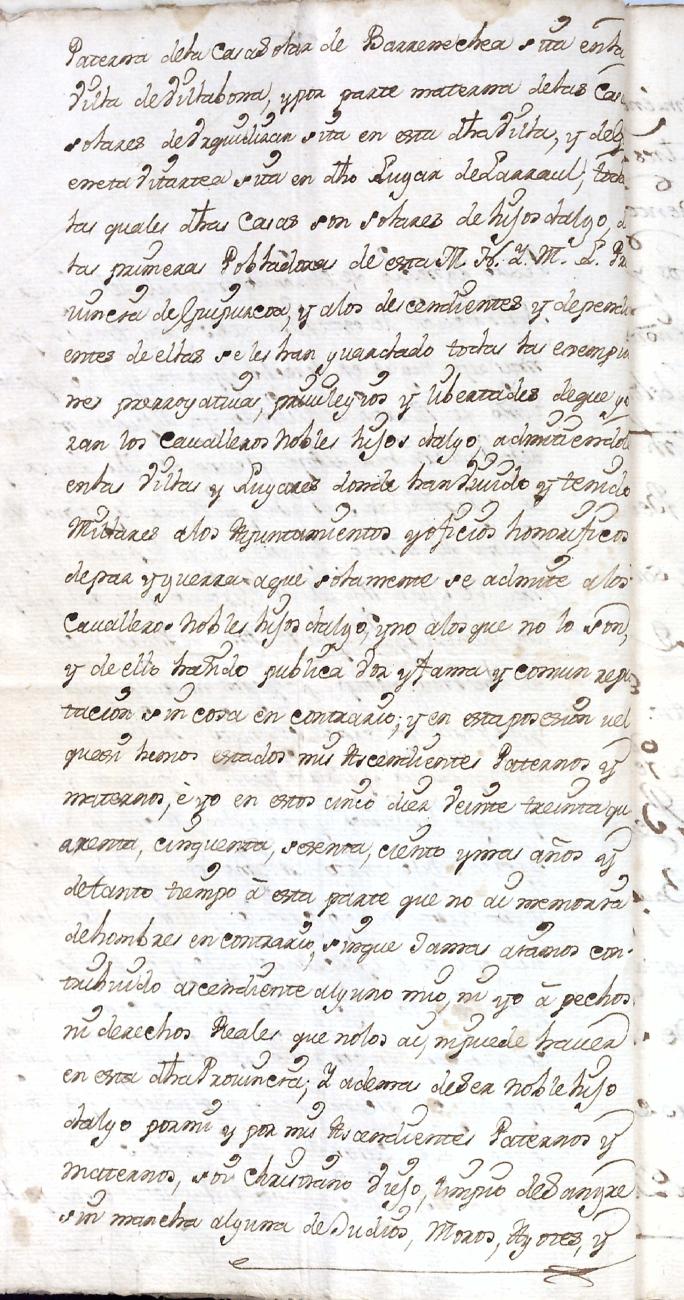 Paterna dela Casa Solar de Barrenechea sita enla
Villa de Villabona, y por parte materna delas Casas
solares de Yrguiliracin sita en esta dha Villa, y de
erreta Vitartea sita en dho Lugar de Larraul, todas
las quales dhas Casas son solares de hijos dalgo, de
las primeras Pobladoras de esta M. N. Y. M. L. Pro
uincia de Guipuzcoa, y alos descendientes y dependi
entes de ellas se les han guardado todas las exempcio
nes prerrogatiuas, priuilegios y libertades deque go
zan los Caualleros Nobles hijos dalgo, admitiendoles
enlas Villas y Lugares donde han Viuido y tenido
Millares alos Ayuntamientos y oficios honorificos
depaz y guerra aque solamente se admite alos
Caualleros Nobles hijos dalgo, y no alos que no lo son,
y de ello ha auido publica Voz y fama y comun repu
tacion sin cosa en contrario; y en esta posesion uel
quesi hemos estados mis Ascendientes Paternos y
maternos, è yo en estos cinco diez Veinte treinta qu
arenta, cinquenta, sesenta, ciento y mas años y
detanto tiempo â esta parte que no ai memoria
dehombres en contrario, sinque Jamas aiamos con-
tribuido ascendiente alguno mio, ni yo â pechos
ni derechos Reales que nolos ai, ni puede hauer
en esta dha Prouincia; Y ademas deSer Noble hijo
dalgo por mi y por mis Ascendientes Paternos y
Maternos, soi Christiano Viejo, limpio deSangre
sin mancha alguna de Judios, Moros, Agotes, y